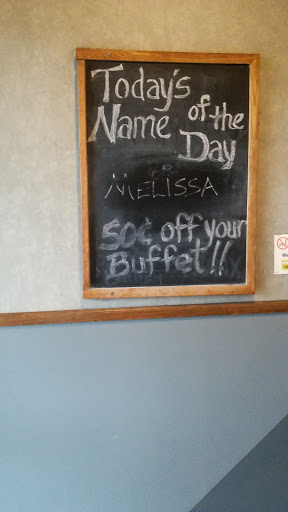 Today's
Name of the
Day
MELISSA
50¢ off your
Buffet!!